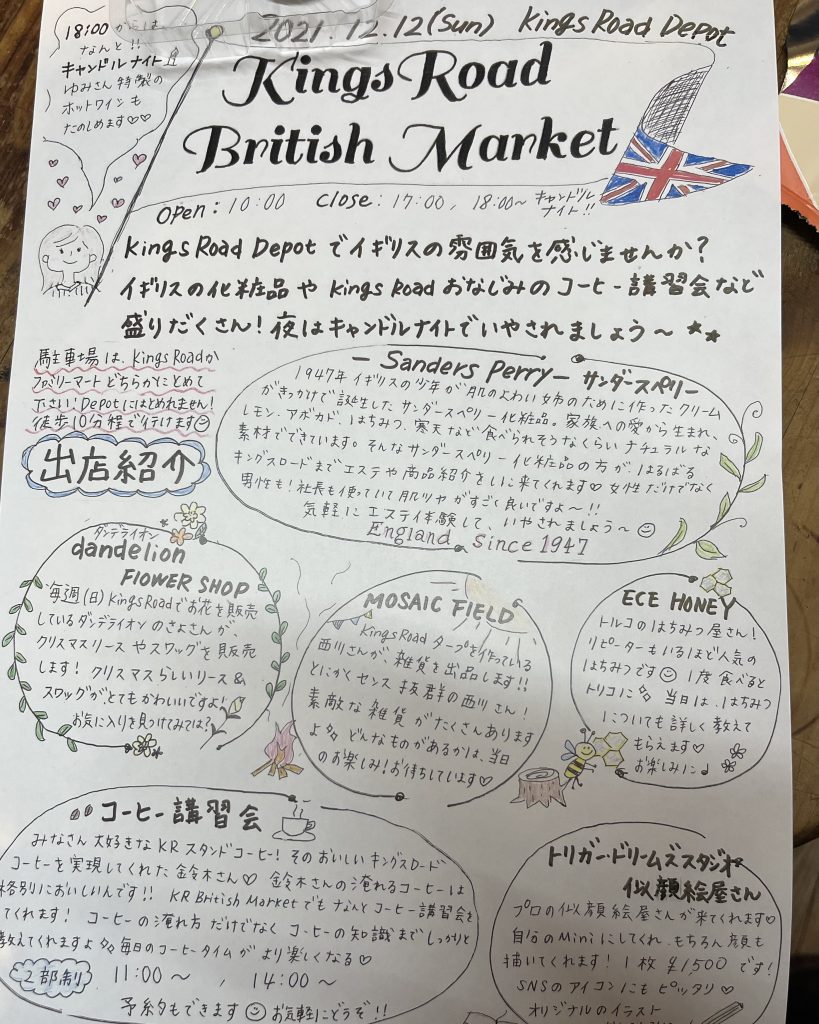 2021.12.12(Sun) Kings Road Depot
18:00からは
なんと!!
キャンドルナイト
ゆみさん特製の
ホットワインも
たのしめます♡♡
Kings Road
British Market
Open: 10:00 Close: 17:00, 18:00~ キャンドル
ナイト!!
Kings Road Depotでイギリスの雰囲気を感じませんか?
イギリスの化粧品やKings Roadおなじみのコーヒー講習会など
盛りだくさん!夜はキャンドルナイトでいやされましょう~ ★★
駐車場は、Kings Roadか
ファミリーマートどちらかにとめて
下さい!Depotにはとめれません!
徒歩10分程で行けます☺
出店紹介
— Sanders Perry — サンダースペリー
1947年イギリスの少年が肌のよわい姉のために作ったクリーム
がきっかけで誕生したサンダースペリー化粧品。家族への愛から生まれ、
レモン、アボカド、はちみつ、寒天など食べられそうなくらいナチュラルな
素材でできています。そんなサンダースペリー化粧品の方が、はるばる
キングスロードまでエステや商品紹介をしに来てくれます♡女性だけでなく
男性も!社長も使っていて肌ツヤがすごく良いですよ~!!
気軽にエステ体験して、いやされましょう~☺
England since 1947
ダンデライオン
dandelion
FLOWER SHOP
毎週(日)Kings Roadでお花を販売
しているダンデライオンのさよさんが、
クリスマスリースやスワッグを販売
します!クリスマスらしいリース&
スワッグが、とてもかわいいですよ!
お気に入りを見つけてみては?
MOSAIC FIELD
Kings Roadタープを作っている
西川さんが、雑貨を出品します!!
とにかくセンス抜群の西川さん!
素敵な雑貨がたくさんあります
よ どんなものがあるかは、当日
のお楽しみ!お待ちしています♡
ECE HONEY
トルコのはちみつ屋さん!
リピーターもいるほど人気の
はちみつです☺1度食べると
トリコに 当日は、はちみつ
についても詳しく教えて
もらえます♡
お楽しみに♩
コーヒー講習会
みなさん大好きなKRスタンドコーヒー!そのおいしいキングスロード
コーヒーを実現してくれた鈴木さん♡ 鈴木さんの淹れるコーヒーは
格別においしいんです!! KR British Marketでもなんとコーヒー講習会を
てくれます! コーヒーの淹れ方だけでなくコーヒーの知識までしっかりと
教えてくれますよ 毎日のコーヒータイムがより楽しくなる♡
2部制 11:00~ , 14:00~
予約もできます☺お気軽にどうぞ!!
トリガードリームズスタジオ
似顔絵屋さん
プロの似顔絵屋さんが来てくれます♡
自分のMiniにしてくれ、もちろん顔も
描いてくれます!1枚¥1,500です!
SNSのアイコンにもピッタリ♡
オリジナルのイラスト